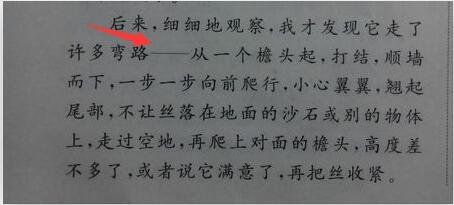 后来，细细地观察，我才发现它走了
许多弯路——从一个檐头起，打结，顺墙
而下，一步一步向前爬行，小心翼翼，翘起
尾部，不让丝落在地面的沙石或别的物体
上，走过空地，再爬上对面的檐头，高度差
不多了，或者说它满意了，再把丝收紧。